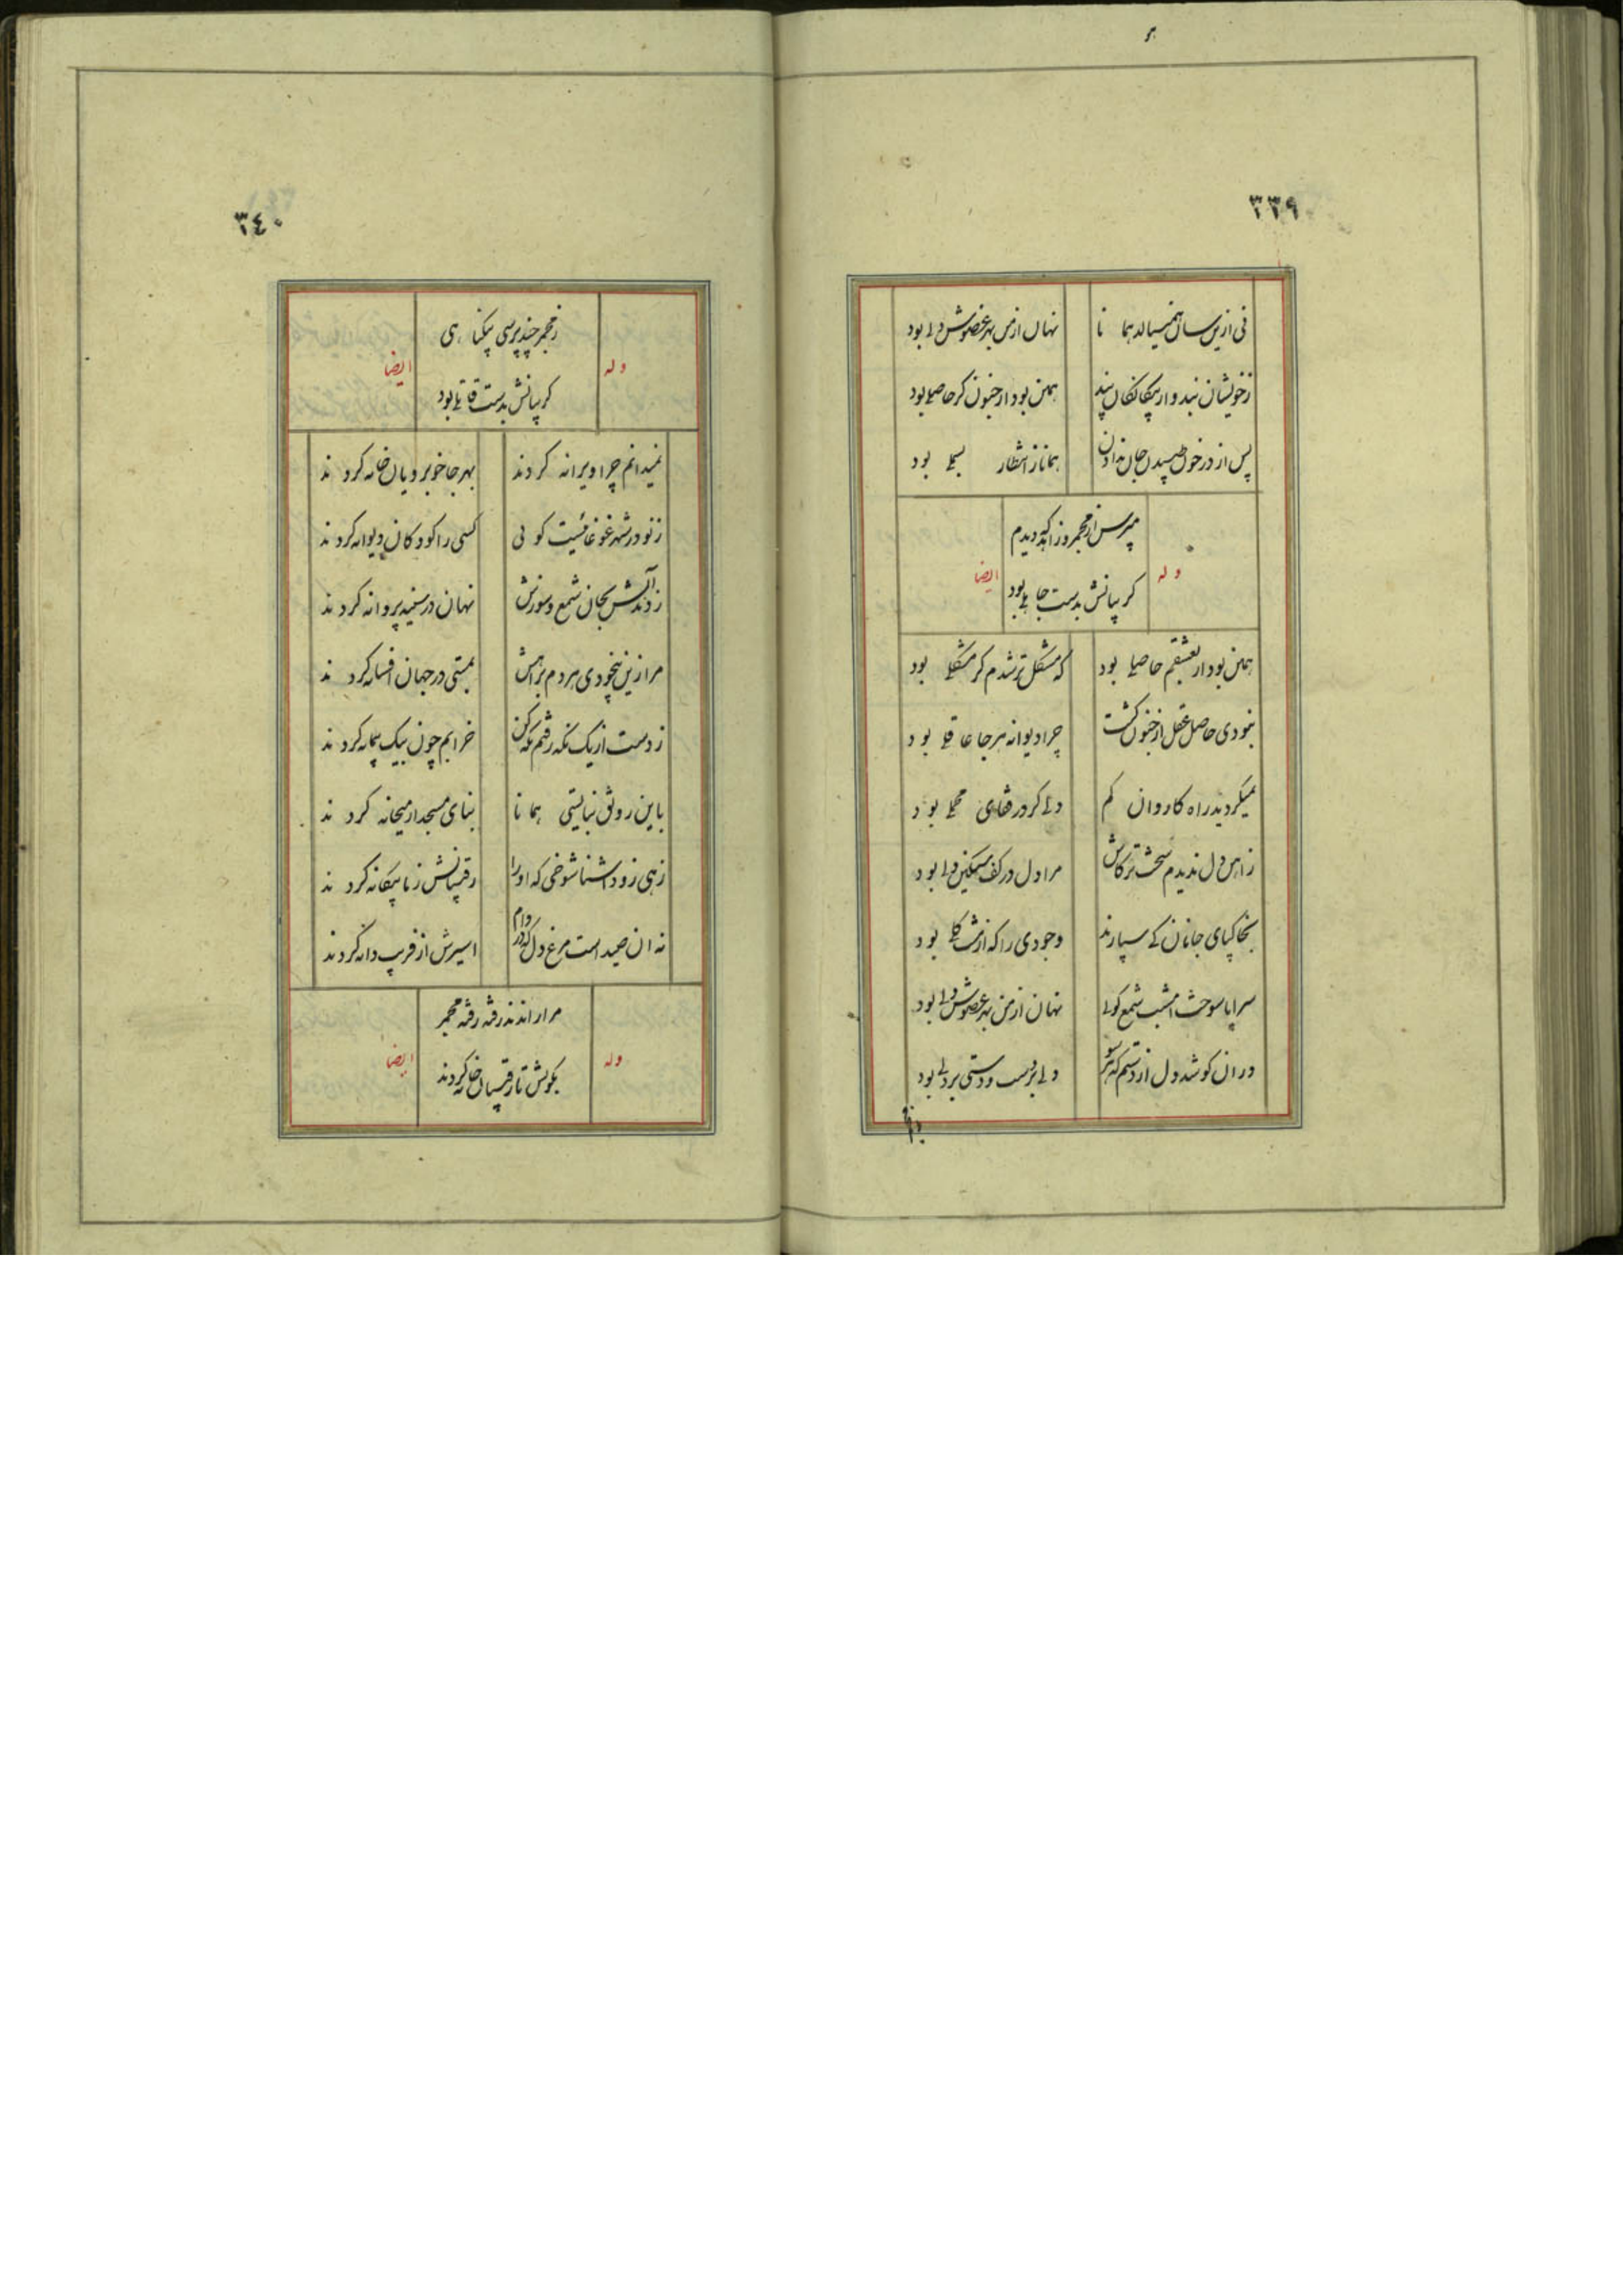 ۳۳۹
نی از این سان همیسالد هما نا
نهان از من بهر عضوش دلی بود
ز خویشان نبد و از بیکانکان پند
همین بود از جنون کر حاصلی بود
پس از در خون طپیدن جان ندادن
همانا ز انتظار بسملی بود
مپرس از مجمر و زاهد که دیدم
وله
ایضا
کریبانش بدست جاهلی بود
همین بود ار بعشقم حاصلی بود
که مشکل تر شدم کر مشکلی بود
نبودی حاصل عقل از جنون کشت
چرا دیوانه هر جا عاقلی بود
نمیکردید راه کاروان کم
دلی کر در قفای محملی بود
ز اهن دل ندیدم سخت تر کاش
مرا دل در کف سنکین دلی بود
بخاکپای جانان کی سپارند
وجودی را که از مشت کلی بود
سراپا سوخت امشب شمع کوئی
نهان از من بهر عضوش دلی بود
در ان کو شد دل از دستم که هر سو
دلی بر دست و دستی بر دلی بود
۳٤۰
ز مجمر چند پرسی بیکنا هی
وله
ایضا
کریبانش بدست قاتلی بود
نمیدانم چرا ویرانه کردند
بهر جا خوبرویان خانه کردند
ز نو در شهر غوغائیست کوئی
کسی را کودکان دیوانه کردند
زدند آتش بجان شمع و سوزش
نهان در سینه پروانه کردند
مرا زین بیخودی مردم براهش
بمستی در جهان افسانه کردند
ز دست از یک نکه رفتم نکه کن
خرابم چون بیک پیمانه کردند
باین رونق نبایستی هما نا
بنای مسجد از میخانه کردند
زهی زود اشنا شوخی که او را
رقیبانش ز ما بیکانه کردند
نه ان صید است مرغ دل که در دام
اسیرش از فریب دانه کردند
مرا راندند رفته رفته مجمر
وله
ایضا
بکویش تا رقیبان خانه کردند